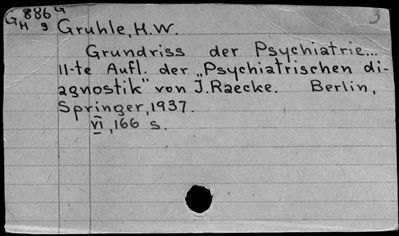 G 886 G
H 3
3
Gruhle, H.W.
Grundriss der Psychiatrie...
11-te Aufl. der „Psychiatrischen di-
agnostik" von J. Raecke. Berlin,
Springer, 1937.
VI, 166 s.